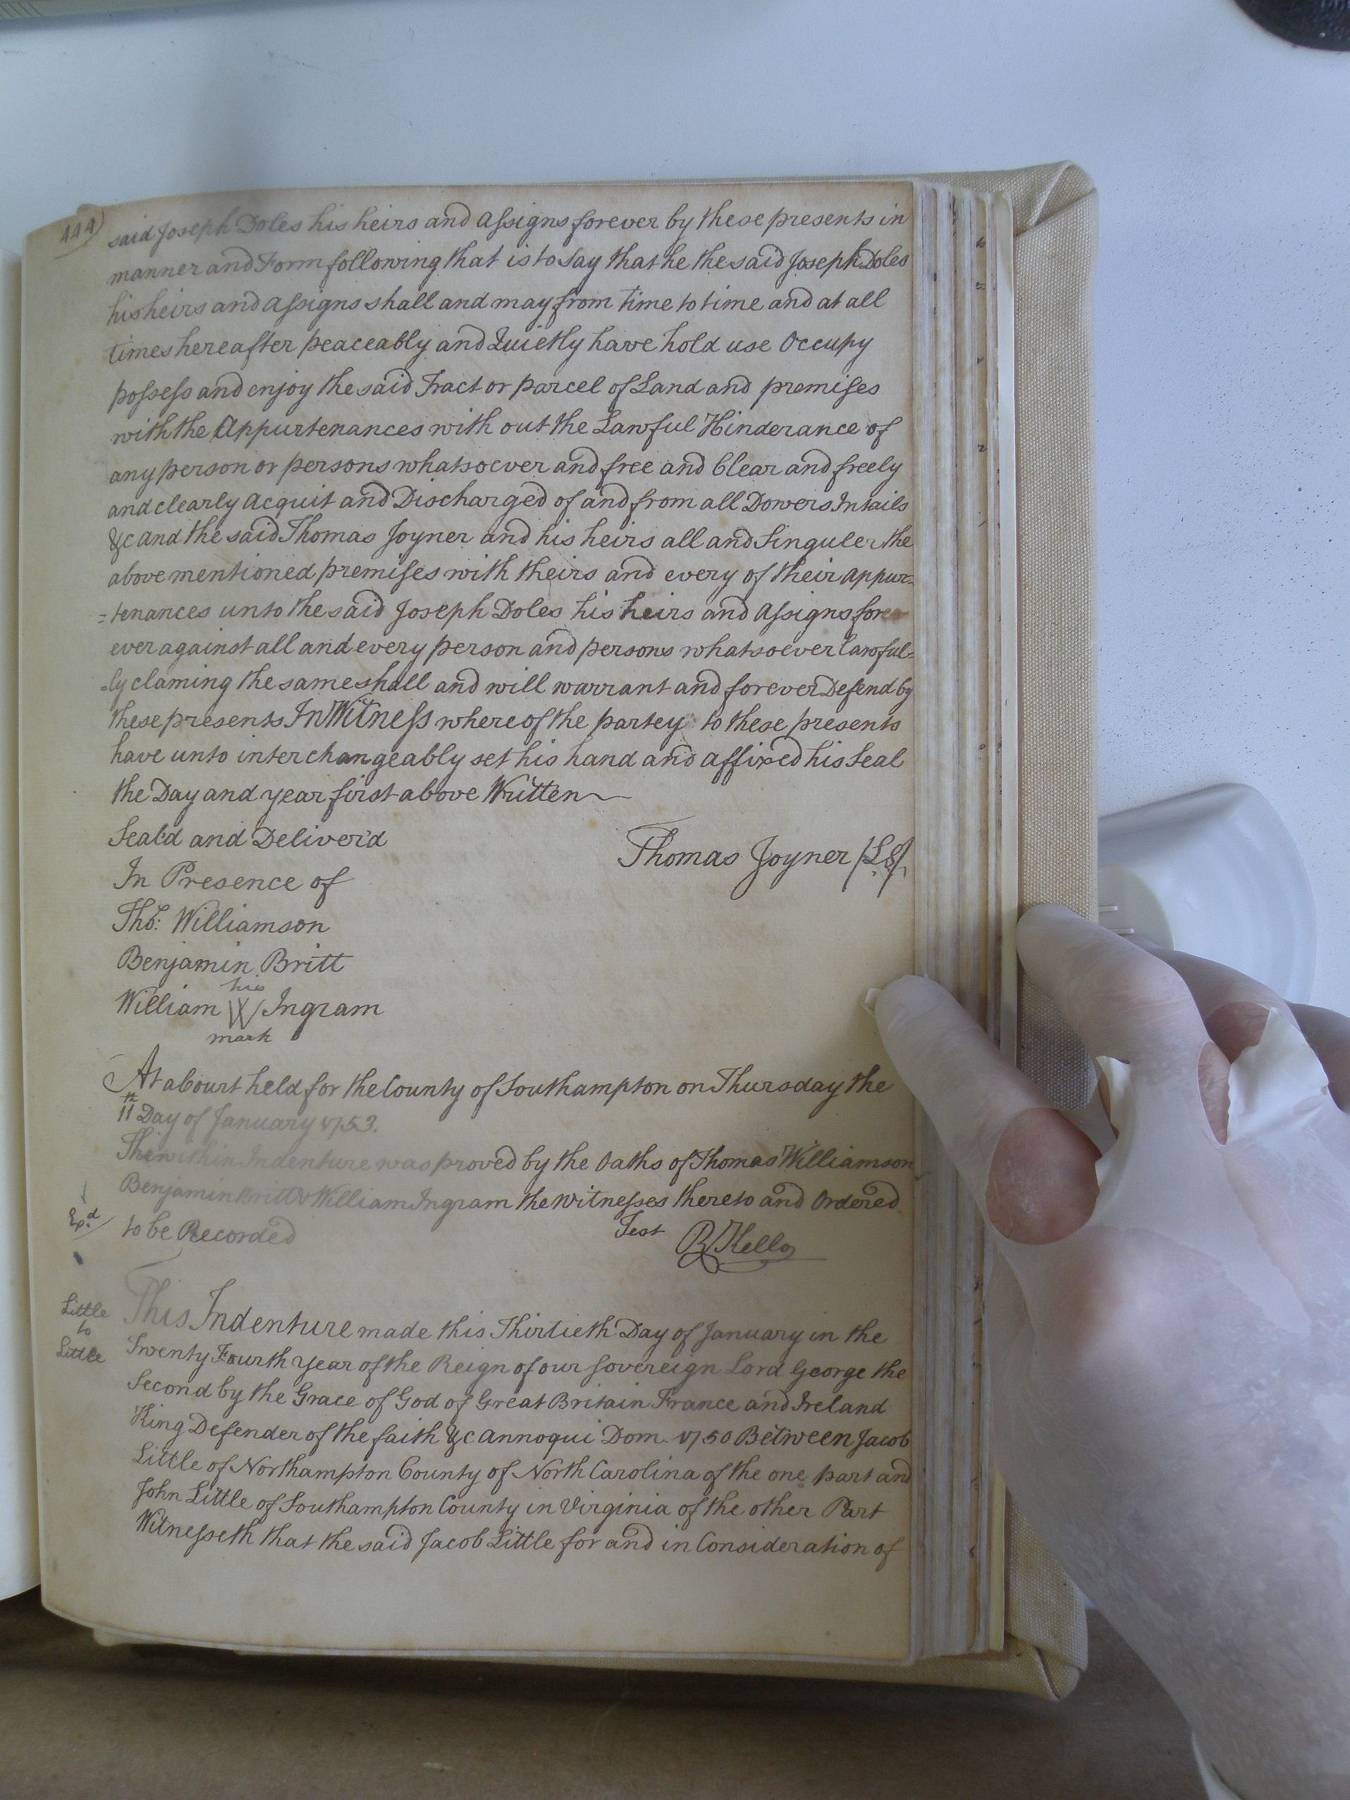 444)
said Joseph Doles his heirs and Assigns forever by these presents in
manner and Form following that is to Say that he the said Joseph Doles
his heirs and Assigns shall and may from time to time and at all
times hereafter peaceably and Quietly have hold use Occupy
possess and enjoy the said Tract or parcel of Land and premises
with the Appurtenances with out the Lawful Hinderance of
any person or persons whatsoever and free and Clear and freely
and clearly Acquit and Discharged of and from all Dowers Intails
&c and the said Thomas Joyner and his heirs all and Singuler the
above mentioned premises with theirs and every of their appur=
=tenances unto the said Joseph Doles his heirs and Assigns for
ever against all and every person and persons whatsoever lawful=
=ly claming the same shall and will warrant and forever Defend by
these presents In Witness whereof the partey to these presents
have unto interchangeably set his hand and affixed his Seal
the Day and year first above Written
Seal'd and Deliver'd
Thomas Joyner (LS)
In Presence of
Tho: Williamson
Benjamin Britt
his
William W Ingram
mark
At a Court held for the County of Southampton on Thursday the
11th Day of January 1753.
The within Indenture was proved by the Oaths of Thomas Williamson
Benjamin Britt & William Ingram the Witnesses thereto and Ordered
Exd
to be Recorded
Test RKello
Little
to
Little
This Indenture made this Thirtieth Day of January in the
Twenty Fourth Year of the Reign of our Sovereign Lord George the
Second by the Grace of God of Great Britain France and Ireland
King Defender of the faith &c Annoqui Dom. 1750 Between Jacob
Little of Northampton County of North Carolina of the one part and
John Little of Southampton County in Virginia of the other Part
Witnesseth that the said Jacob Little for and in Consideration of